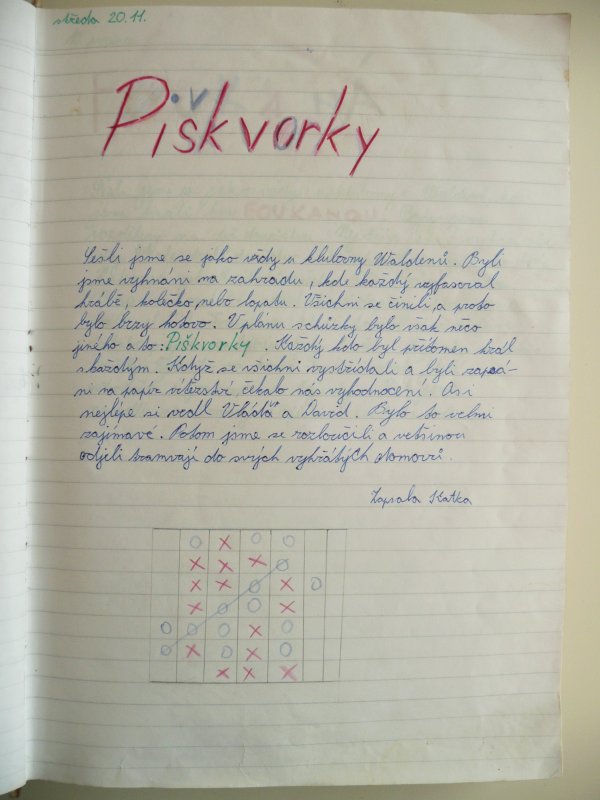 středa 20.11.
Piškvorky
Sešli jsme se jako vždy u klubovny Waldenů. Byli
jsme vyhnáni na zahradu, kde každý vyfasoval
hrábě, kolečko nebo lopatu. Všichni se činili, a proto
bylo brzy hotovo. V plánu schůzky bylo však něco
jiného a to: Piškvorky. Každý kdo byl přítomen hrál
s každým. Když se všichni vystřídali a byli zapsá-
ni na papír vítězství, čekalo nás vyhodnocení. Asi
nejlépe si vedl Vláďa a David. Bylo to velmi
zajímavé. Potom jsme se rozloučili a většinou
odjeli tramvají do svých vyhřátých domovů.
Zapsala Katka
O X O O
X X X O
X X O X O
X O O X
O O O X O
O X O X O
X X X